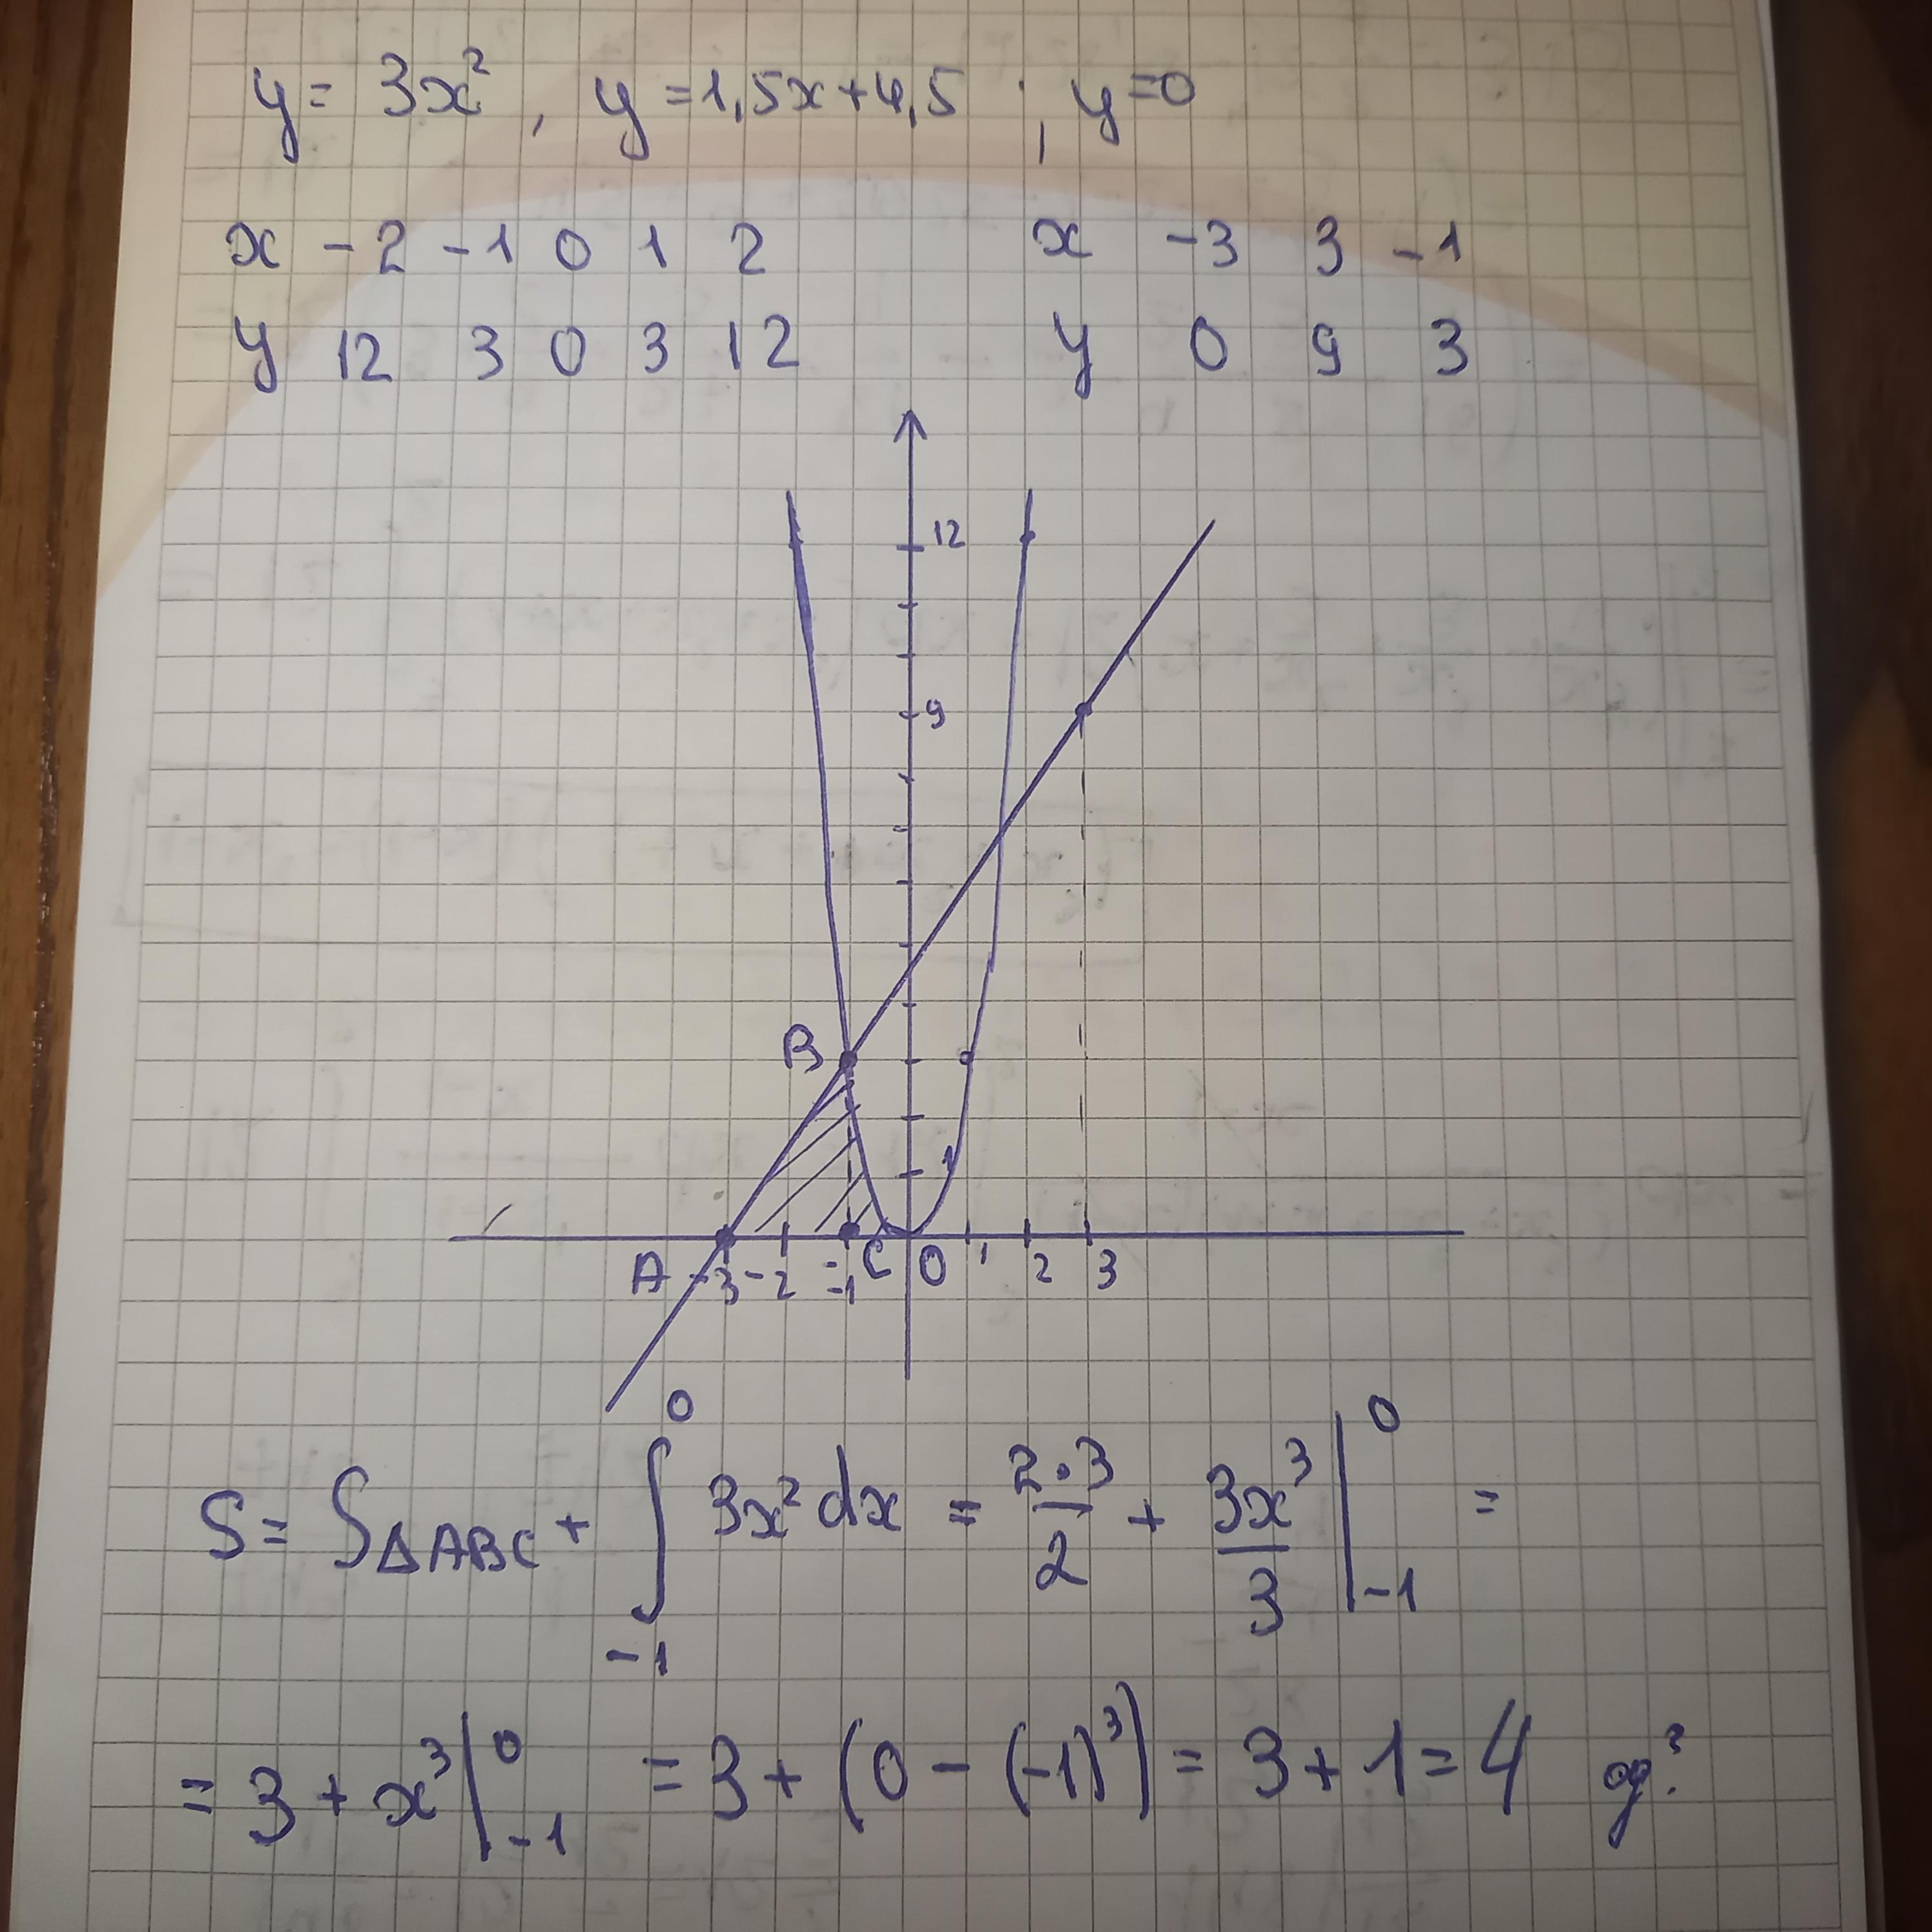 y = 3x², y = 1,5x+4,5 ; y=0
x -2 -1 0 1 2
y 12 3 0 3 12
x -3 3 -1
y 0 9 3
12
9
B
1
A -3 -2 -1 C 0 1 2 3
S = S△ABC + ∫₋₁⁰ 3x² dx = 2·3/2 + 3x³/3 |₋₁⁰ =
= 3 + x³ |₋₁⁰ = 3 + (0 - (-1)³) = 3 + 1 = 4 од²